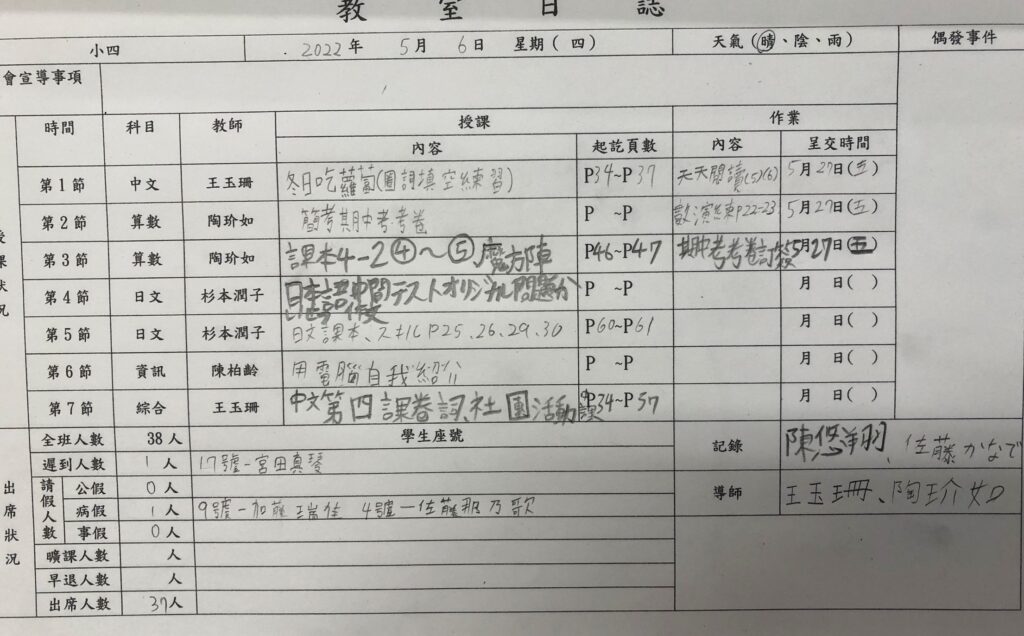 教室日誌
小四 2022年 5月 6日 星期(四) 天氣(晴、陰、雨) 偶發事件
會宣導事項
時間 科目 教師 授課 作業
內容 起訖頁數 內容 呈交時間
第1節 中文 王玉珊 冬日吃蘿蔔(圈詞填空練習) P34~P37 天天閱讀(5)(6) 5月27日(五)
第2節 算數 陶玠如 簡考期中考考卷 P ~P 數演練P22-23 5月27日(五)
第3節 算數 陶玠如 課本4-2④~⑤魔方陣 P46~P47 期中考考卷訂 5月27日(五)
第4節 日文 杉本潤子 日本語中間テストオリジナル問題 P ~P 月 日( )
第5節 日文 杉本潤子 日文課本、スキルP25.26.29.30 P60~P61 月 日( )
第6節 資訊 陳柏齡 用電腦自我紹介 P ~P 月 日( )
第7節 綜合 王玉珊 中文第四課卷詞、社團活動課 P34~P57 月 日( )
授課狀況
全班人數 38人 學生座號 記錄 陳悠翔、佐藤かなで
遲到人數 1人 17號-宮田真琴
請假人數 公假 0人 導師 王玉珊、陶玠如
病假 1人 9號-加藤瑞佳 4號-佐藤那乃歌
事假 0人
曠課人數 人
早退人數 人
出席人數 37人
出席狀況